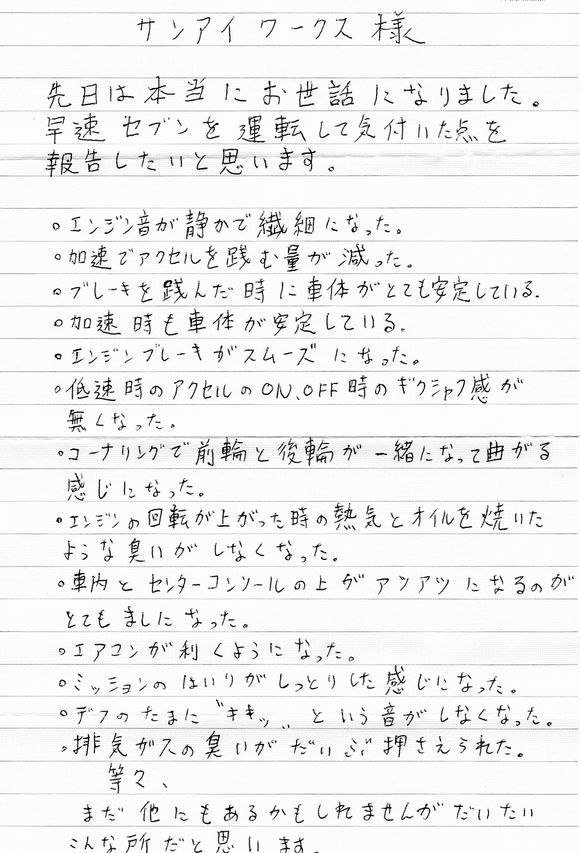 サンアイワークス様
先日は本当にお世話になりました。
早速セブンを運転して気付いた点を
報告したいと思います。
。エンジン音が静かで繊細になった。
。加速でアクセルを践む量が減った。
。ブレーキを践んだ時に車体がとても安定している.
。加速時も車体が安定している.
。エンジンブレーキがスムーズになった。
。低速時のアクセルのON、OFF時のギクシャク感が
無くなった。
。コーナリングで前輪と後輪が一緒になって曲がる
感じになった。
。エンジンの回転が上がった時の熱気とオイルを焼いた
ような臭いがしなくなった。
。車内とセンターコンソールの上がアツアツになるのが
とてもましになった。
。エアコンが利くようになった。
。ミッションのはいりがしっとりした感じになった。
。デフのたまに〝キキッ〟という音がしなくなった。
。排気ガスの臭いがだいぶ押さえられた。
等々、
まだ他にもあるかもしれませんがだいたい
こんな所だと思います。